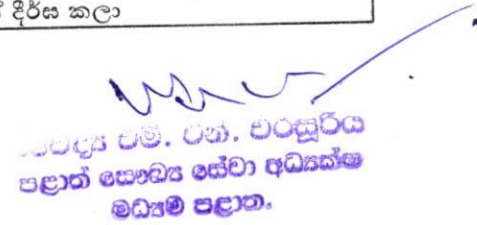 දීර්ඝ කලා
වෛද්‍ය එම්. එන්. වීරසූරිය
පළාත් සෞඛ්‍ය සේවා අධ්‍යක්ෂ
මධ්‍යම පළාත.